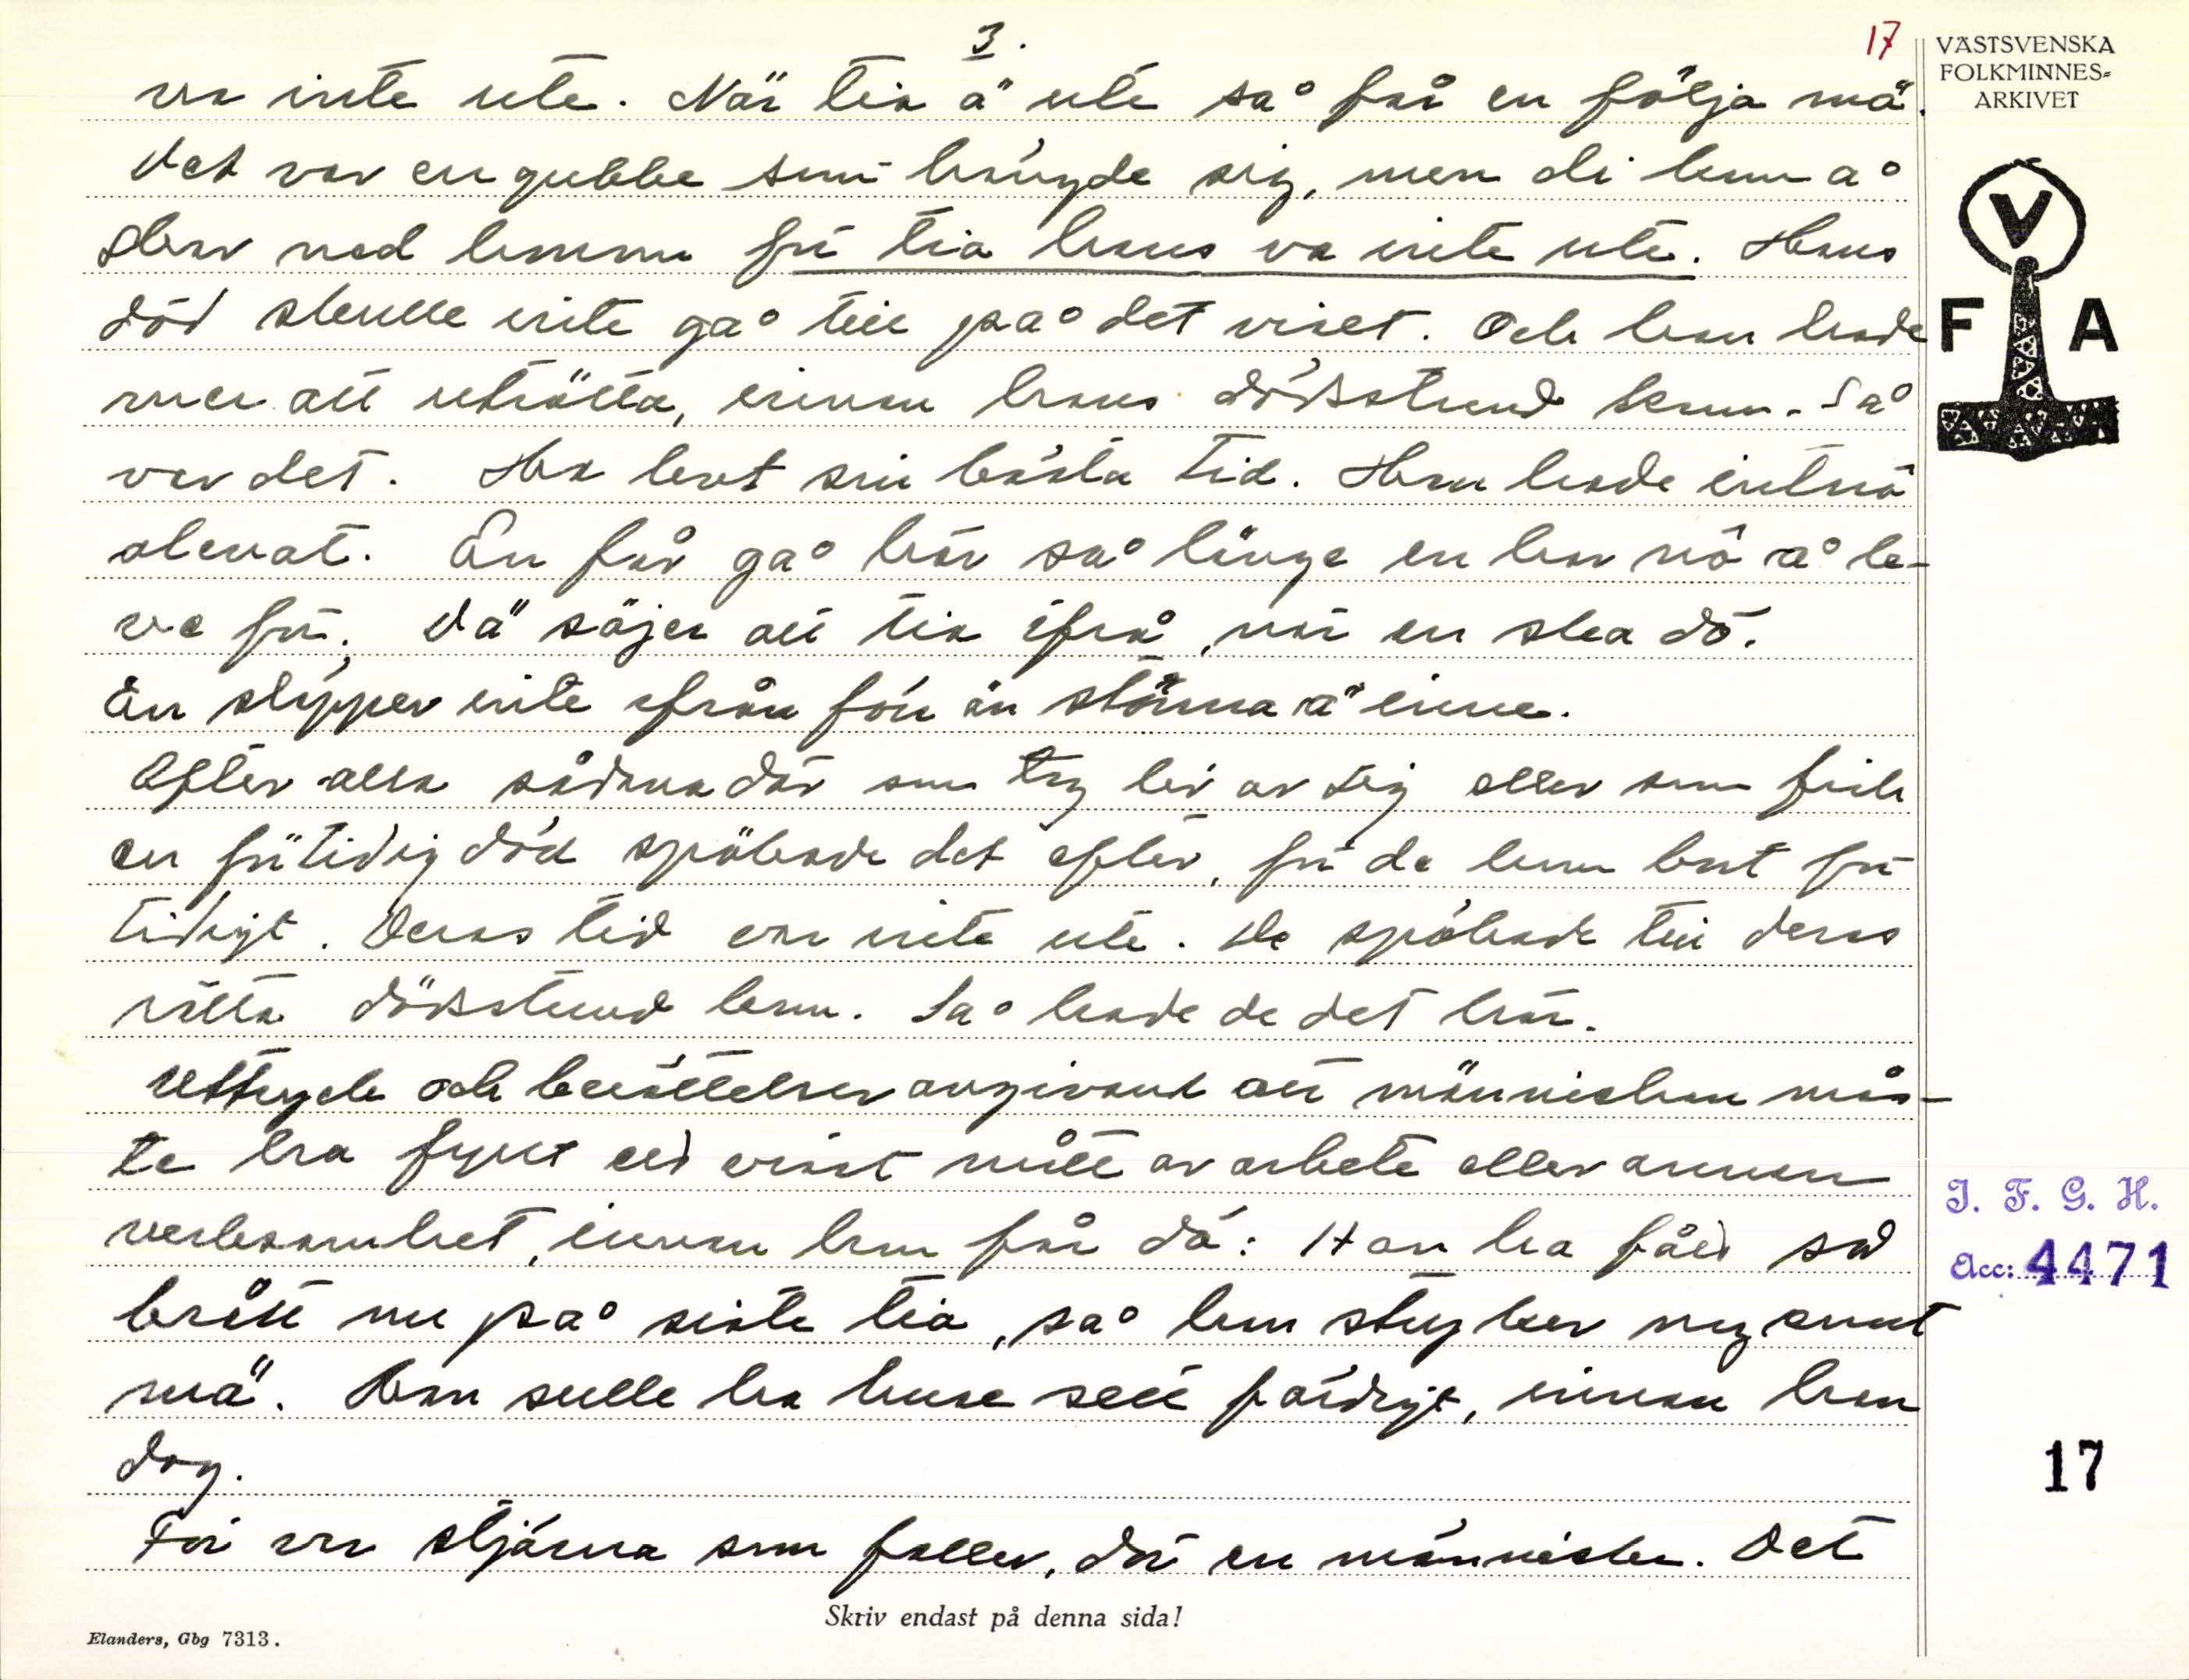 3.
17
VÄSTSVENSKA
FOLKMINNES-
ARKIVET
V
F A
var inte ute. När tia ä ute så får en följa mä.
Det var en gubbe som hängde sig, men di kom å
skar ned honom för tia hans va inte ute. Hans
död skulle inte gå till på det viset. Och han hade
mer att uträtta, innan hans dödsstund kom. Så
var det. Ha levt sin bästa tid. Han hade intnö
olevat. En får gå här så länge en har nö å le-
va för. Dä säjer att tia ifrå, när en ska dö.
En slipper inte ifrån förr än stönna ä inne.
Efter alla sådana där som tog liv av sig eller som fick
en för tidig död spökade det efter, för de kom bort för
tidigt. Deras tid var inte ute. De spökade till deras
rätta dödsstund kom. Så hade de det här.
Uttryck och berättelser angivand att människan mås-
te ha fyllt ett visst mått av arbete eller annan
verksamhet, innan han får dö: Han ha fått så
brått nu på siste tia, så han stryker nog snart
mä. Han sulle ha huse sett färdigt, innan han
dog.
För var stjärna som faller, dör en människa. Det
I. F. G. H.
Acc: 4471
17
Skriv endast på denna sida!
Elanders, Gbg 7313.